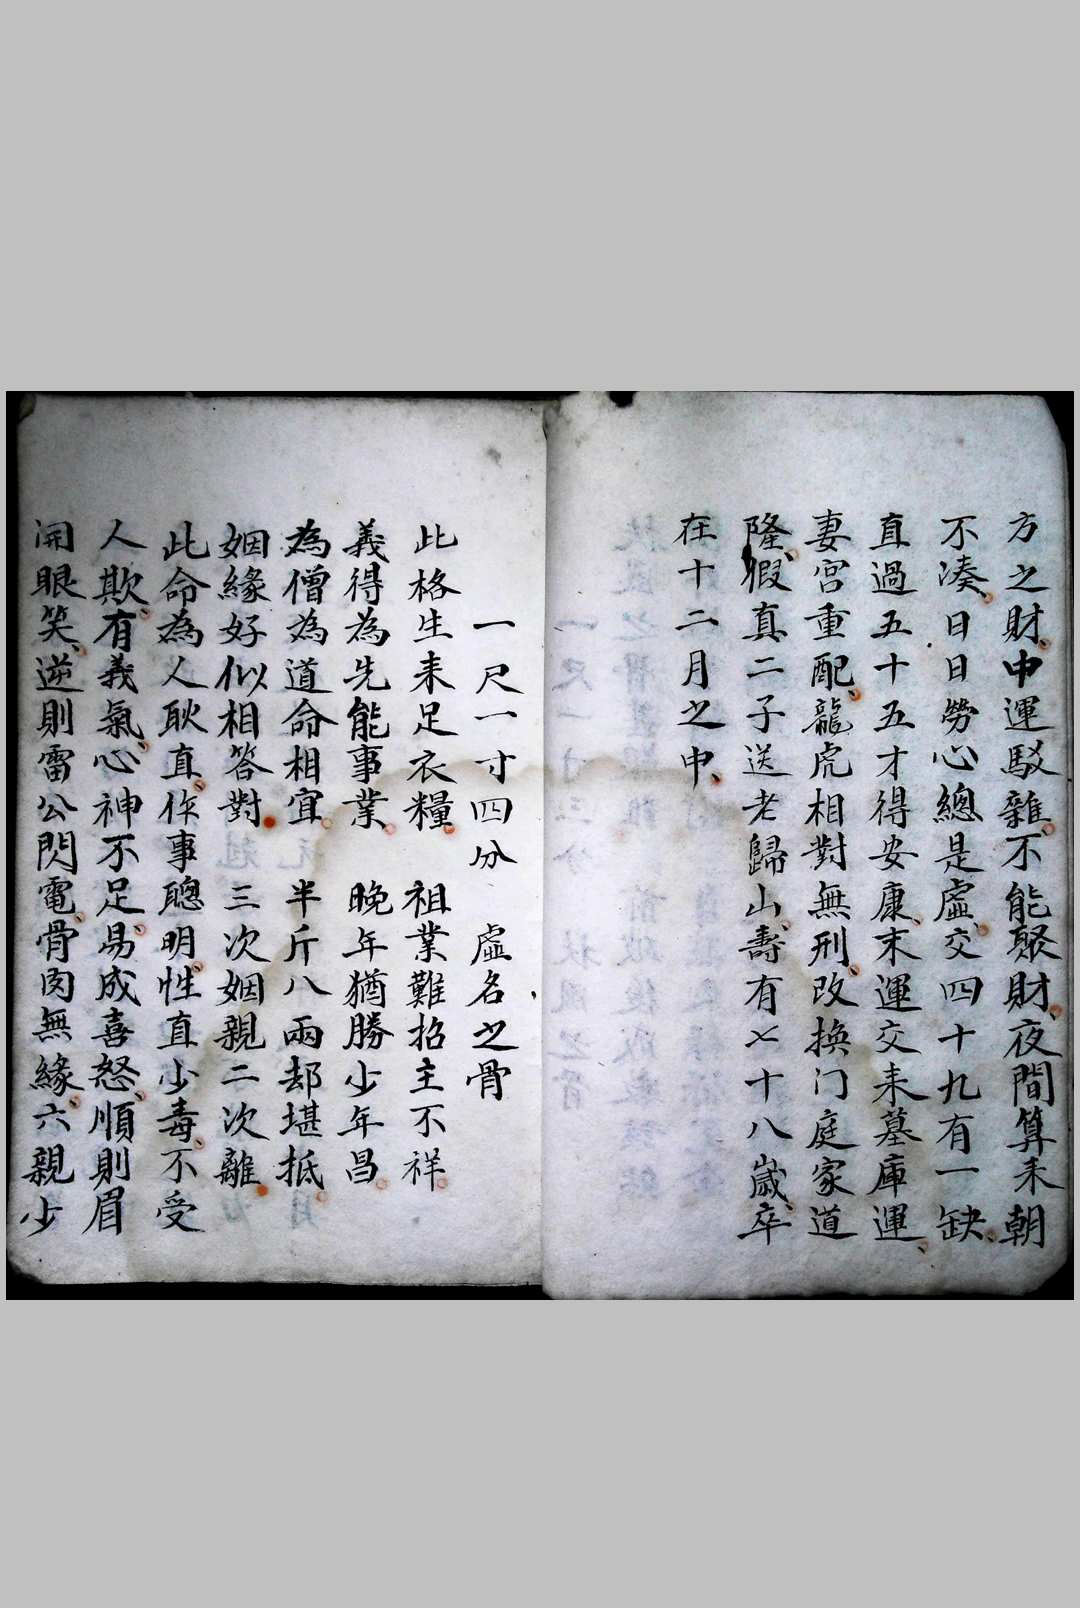 方之財中運駁雜不能聚財夜間算来朝
不凑日日勞心總是虛交四十九有一缺
直過五十五才得安康末運交来墓庫運
妻宮重配龍虎相對無刑改換门庭家道
隆假真二子送老歸山壽有七十八歲卒
在十二月之中
一尺一寸四分　虛名之骨
此格生来足衣糧　祖業難招主不祥
義得為先能事業　晚年猶勝少年昌
為僧為道命相宜　半斤八兩却堪抵
姻緣好似相答對　三次姻親二次離
此命為人耿直作事聰明性直少毒不受
人欺有義氣心神不足易成喜怒順則眉
開眼笑逆則雷公閃電骨肉無緣六親少